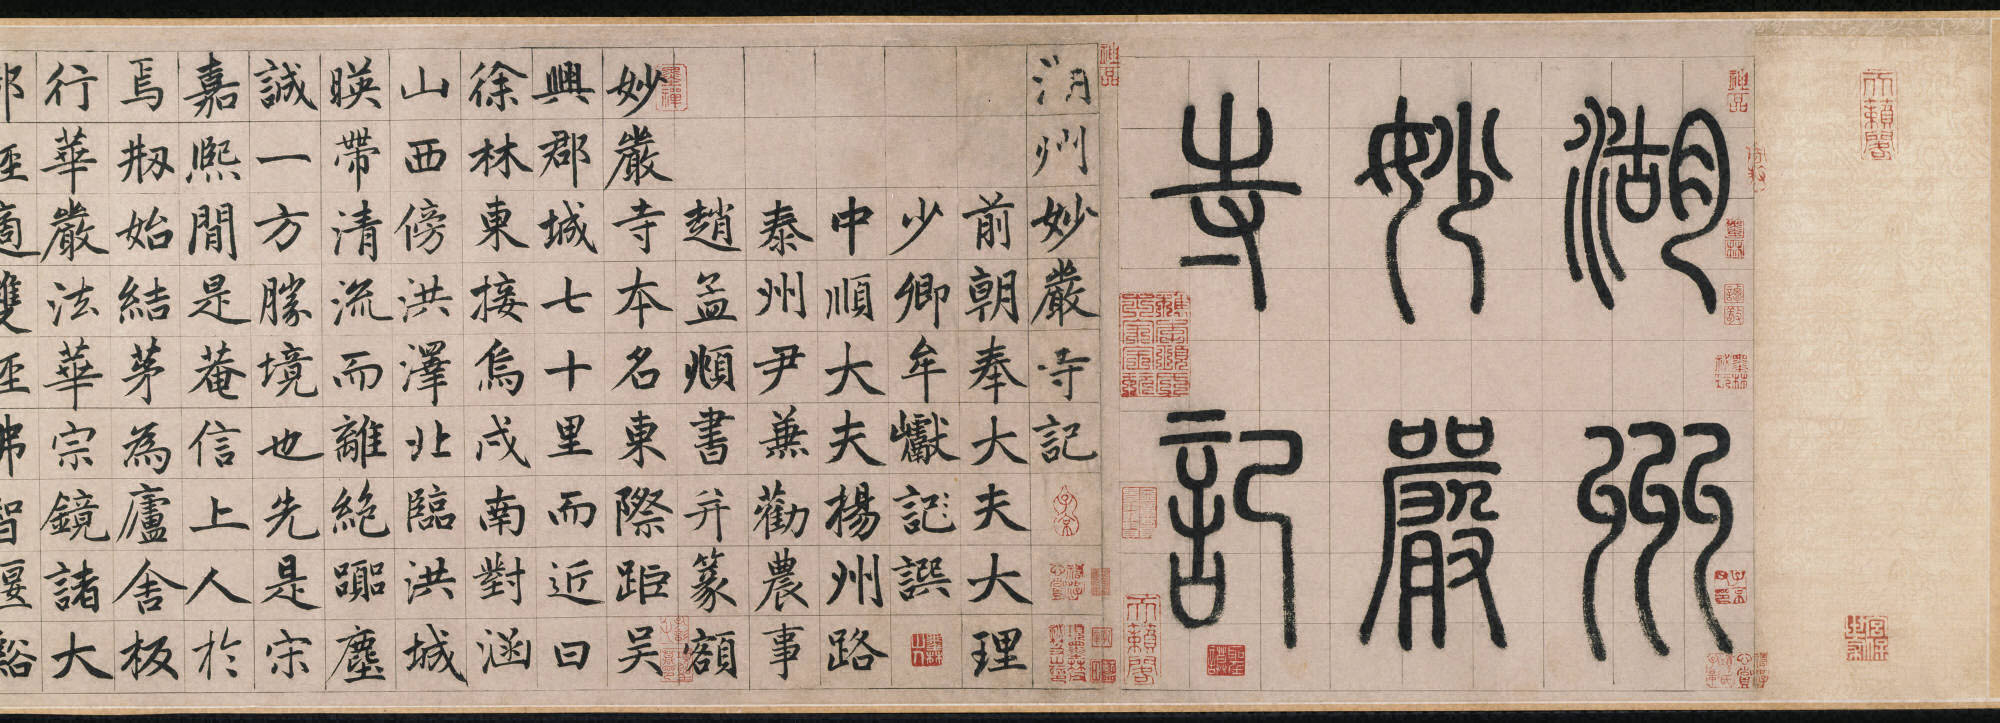 天籟閣
宮保世家
神品
湖州
妙嚴
寺記
天籟閣
神品
湖州妙嚴寺記
子京
前朝奉大夫大理
少卿牟巘記譔
中順大夫揚州路
泰州尹兼勸農事
趙孟頫書并篆額
妙嚴寺本名東際距吳
興郡城七十里而近曰
徐林東接烏戍南對涵
山西傍洪澤北臨洪城
暎帶清流而離絕塵
誠一方勝境也先是宋
嘉熙間是菴信上人於
焉剏始結茅為廬舍板
行華嚴法華宗鏡諸大